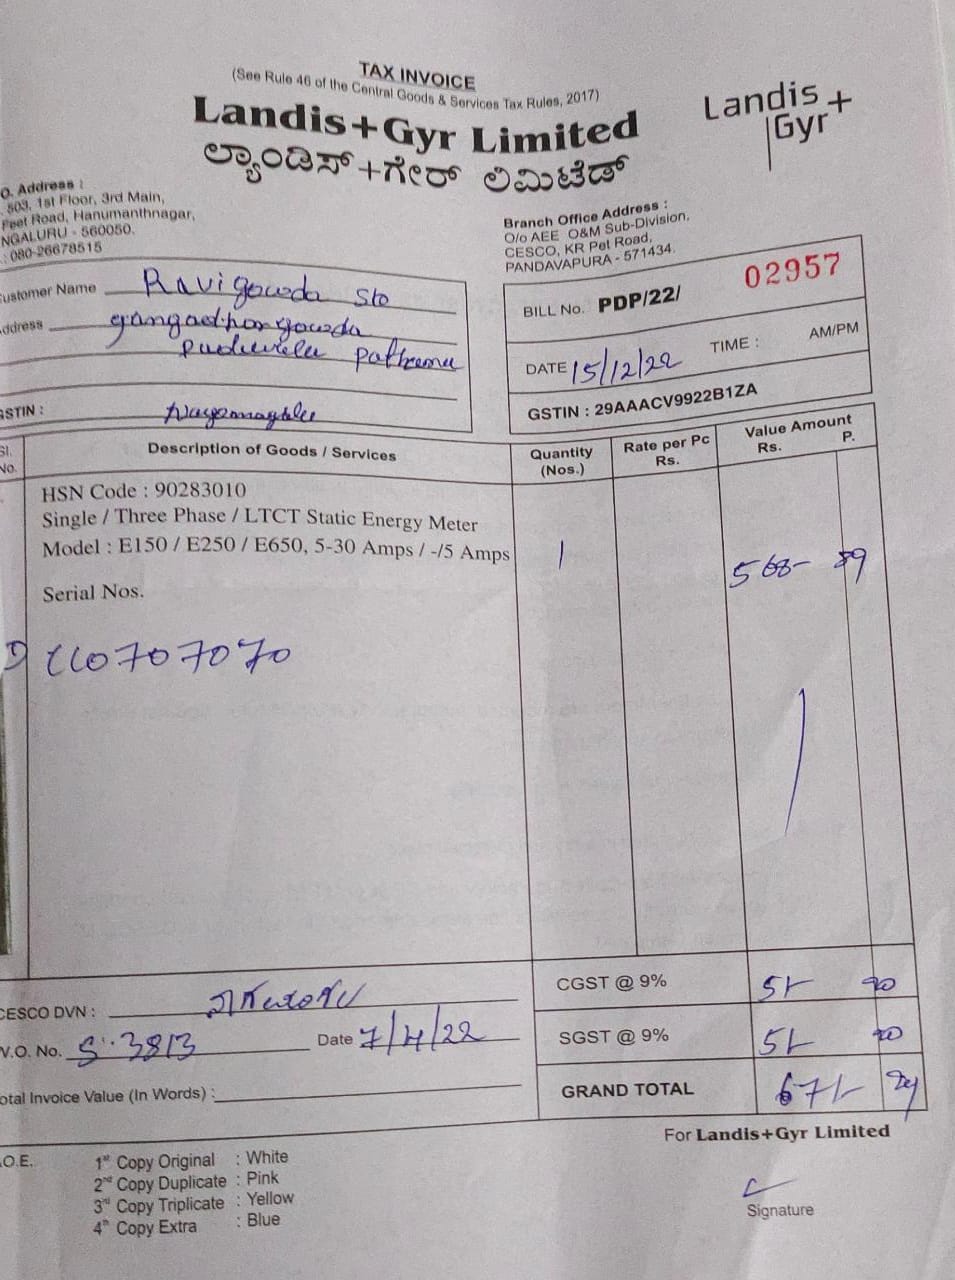 TAX INVOICE
(See Rule 46 of the Central Goods & Services Tax Rules, 2017)
Landis+Gyr Limited
ಲ್ಯಾಂಡಿಸ್+ಗೇರ್ ಲಿಮಿಟೆಡ್
Landis+
Gyr
O. Address :
503, 1st Floor, 3rd Main,
Feet Road, Hanumanthnagar,
NGALURU - 560050.
: 080-26678515
Branch Office Address :
O/o AEE O&M Sub-Division,
CESCO, KR Pet Road,
PANDAVAPURA - 571434.
ustomer Name Ravigowda S/o
ddress gangadhargowda
BILL No. PDP/22/ 02957
DATE 15/12/22 TIME : AM/PM
GSTIN : 29AAACV9922B1ZA
GSTIN :
Sl. No. Description of Goods / Services Quantity (Nos.) Rate per Pc Rs. Value Amount Rs. P.
HSN Code : 90283010
Single / Three Phase / LTCT Static Energy Meter
Model : E150 / E250 / E650, 5-30 Amps / -/5 Amps 1 568- 89
Serial Nos.
CESCO DVN :
V.O. No. S 3813 Date 7/4/22
otal Invoice Value (In Words) :
CGST @ 9% 51- 20
SGST @ 9% 51- 20
GRAND TOTAL 671- 29
For Landis+Gyr Limited
.O.E.
1st Copy Original : White
2nd Copy Duplicate : Pink
3rd Copy Triplicate : Yellow
4th Copy Extra : Blue
Signature